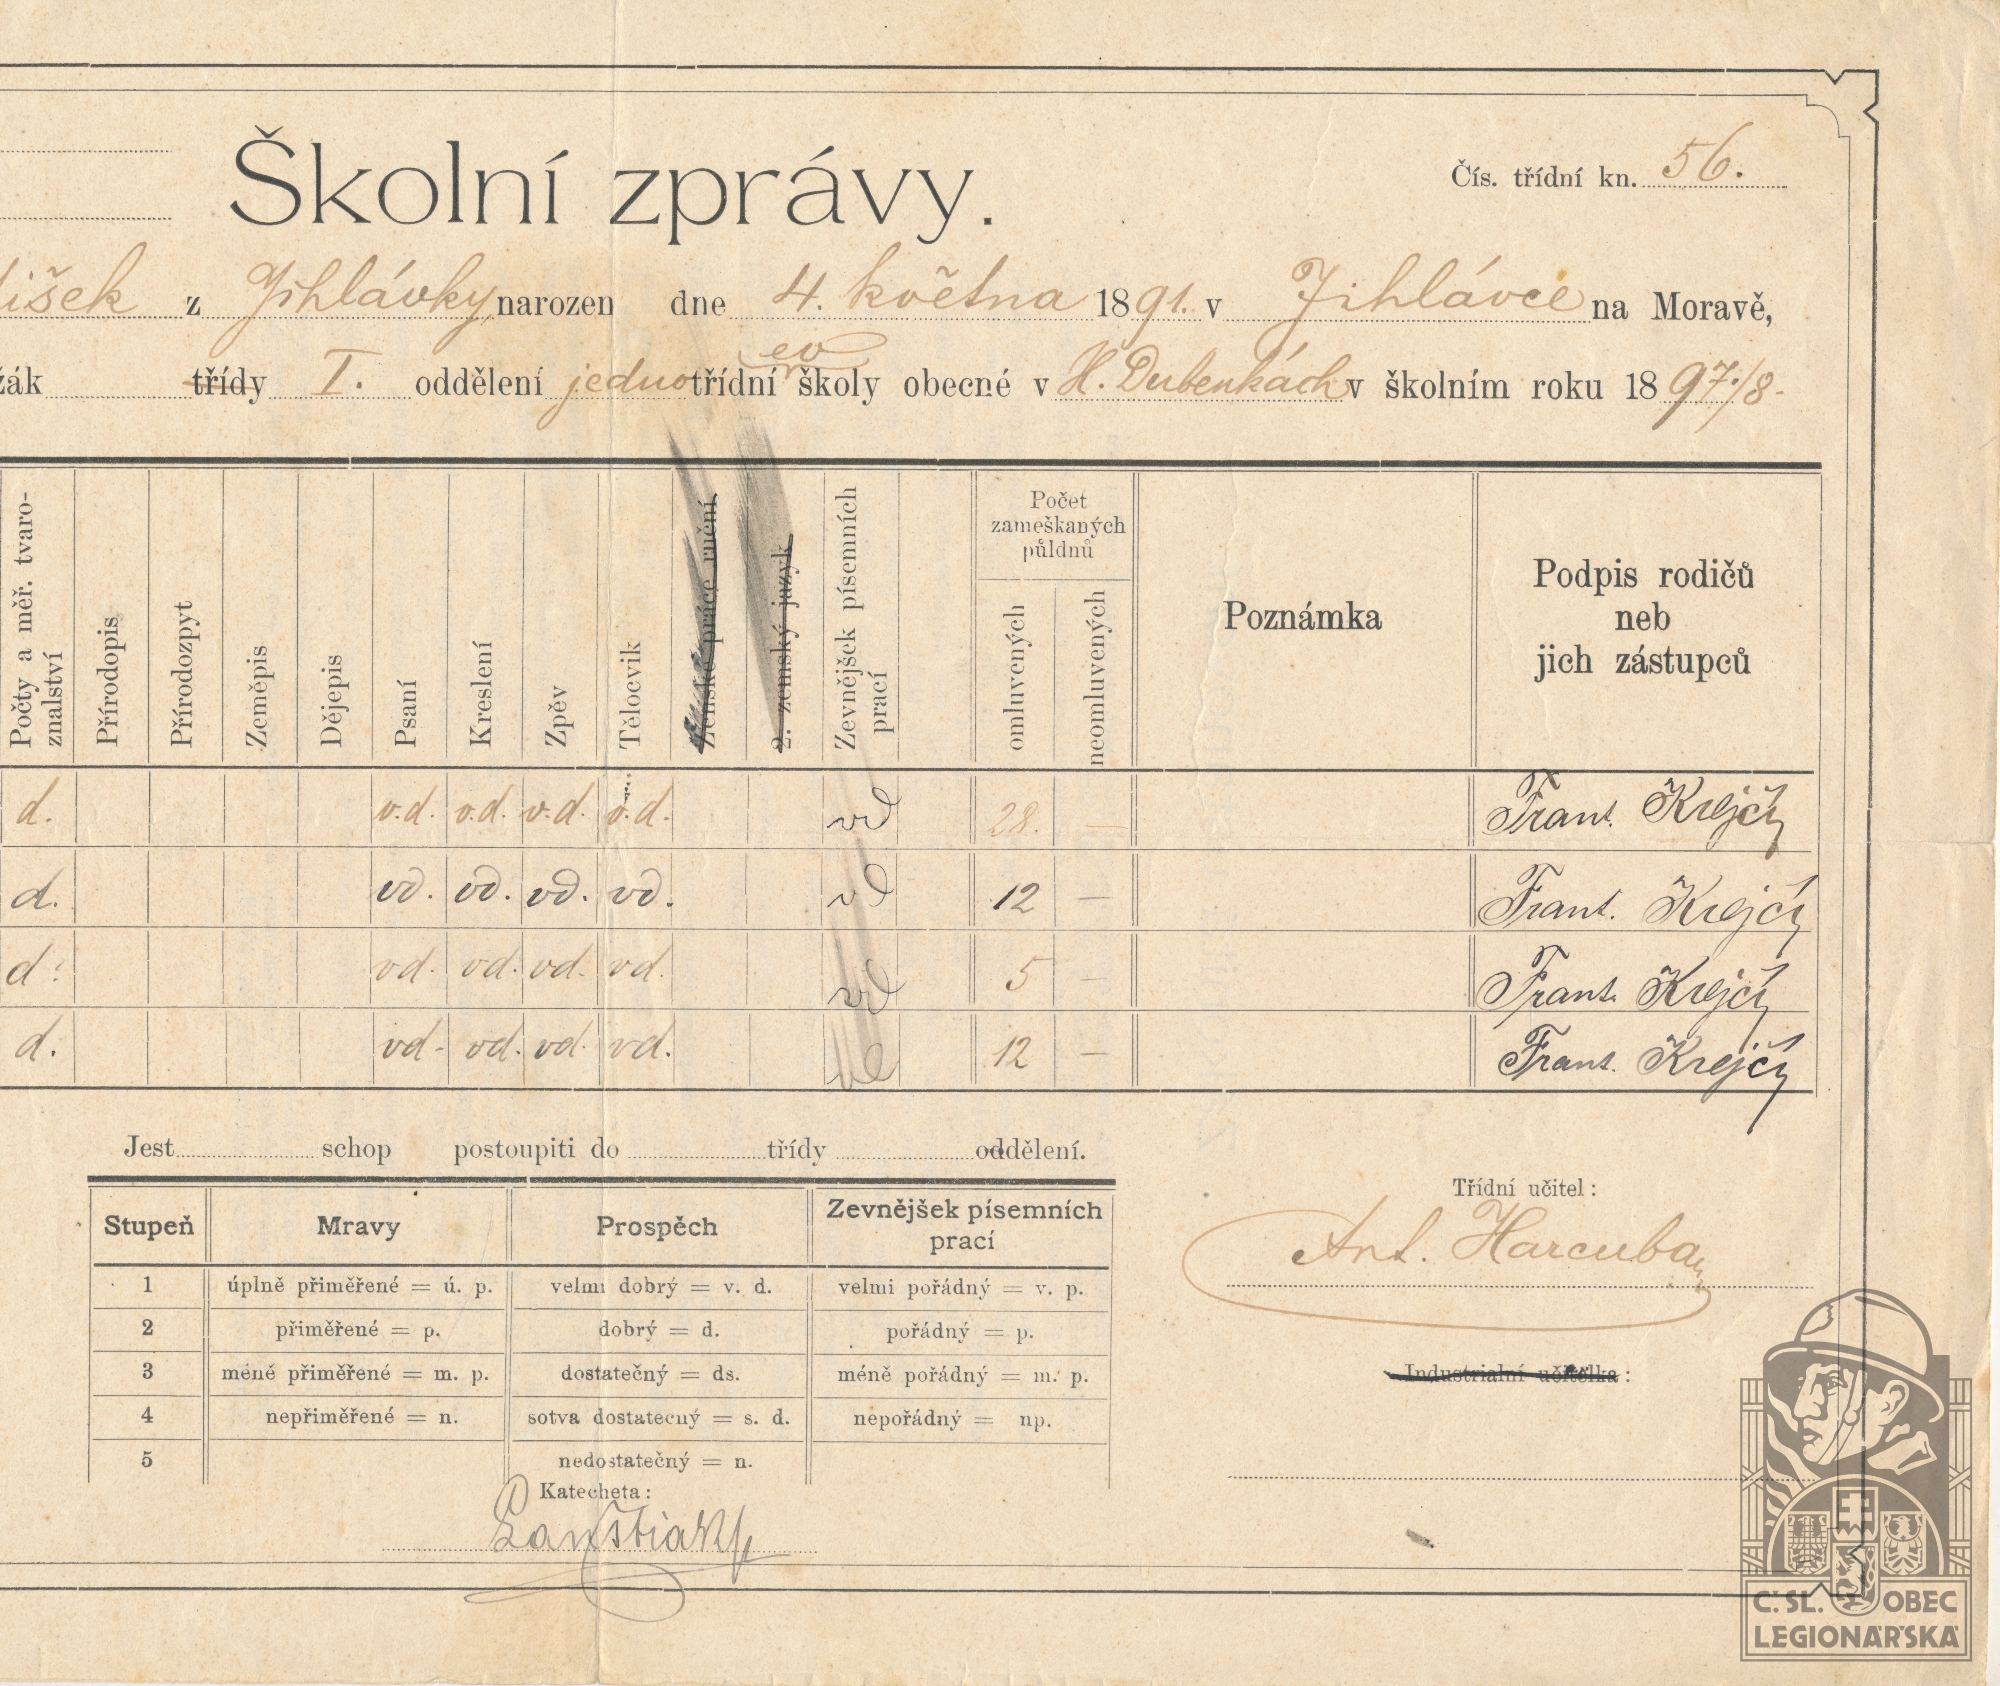 Školní zprávy.
Čís. třídní kn. 56.
z Jihlávky narozen dne 4. května 1891. v Jihlávce na Moravě,
žák třídy I. oddělení jednotřídní ev školy obecné v H. Dubenkách v školním roku 1897./8.
Počty a měř. tvaro-
znalství
Přírodopis
Přírodozpyt
Zeměpis
Dějepis
Psaní
Kreslení
Zpěv
Tělocvik
Ženské práce ruční
2. zemský jazyk
Zevnějšek písemních
prací
Počet
zameškaných
půldnů
omluvených
neomluvených
Poznámka
Podpis rodičů
neb
jich zástupců
d. v.d. v.d. v.d. v.d. vd 28. — Frant. Krejčí
d. vd. vd. vd. vd. vd 12 — Frant. Krejčí
d. vd. vd. vd. vd. vd 5 — Frant. Krejčí
d. vd. vd. vd. vd. 12 — Frant. Krejčí
Jest schop postoupiti do třídy oddělení.
Stupeň Mravy Prospěch Zevnějšek písemních
prací
1 úplně přiměřené = ú. p. velmi dobrý = v. d. velmi pořádný = v. p.
2 přiměřené = p. dobrý = d. pořádný = p.
3 méně přiměřené = m. p. dostatečný = ds. méně pořádný = m. p.
4 nepřiměřené = n. sotva dostatecný = s. d. nepořádný = np.
5 nedostatečný = n.
Katecheta:
Třídní učitel:
Ant. Harcuba
Industrialní učitelka:
Č. SL. OBEC
LEGIONÁŘSKÁ